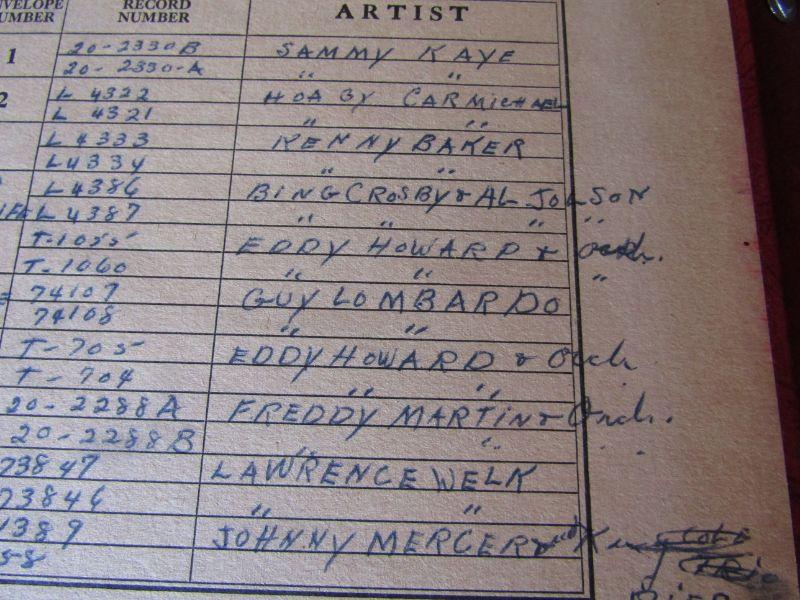 ENVELOPE RECORD ARTIST
NUMBER NUMBER
1 20-2330B SAMMY KAYE
20-2330-A " "
2 L 4322 HOAGY CARMICHAEL
L 4321 " "
L 4333 KENNY BAKER
L 4334 " "
L 4386 BING CROSBY & AL JOLSON
L 4387 " " " "
T-1055 EDDY HOWARD & Orch.
T-1060 " " "
74107 GUY LOMBARDO
74108 " "
T-705 EDDY HOWARD & Orch
T-704 " "
20-2288A FREDDY MARTIN & Orch.
20-2288B " " " "
73847 LAWRENCE WELK
73846 " "
1389 JOHNNY MERCER and King COLE
58 TRIO